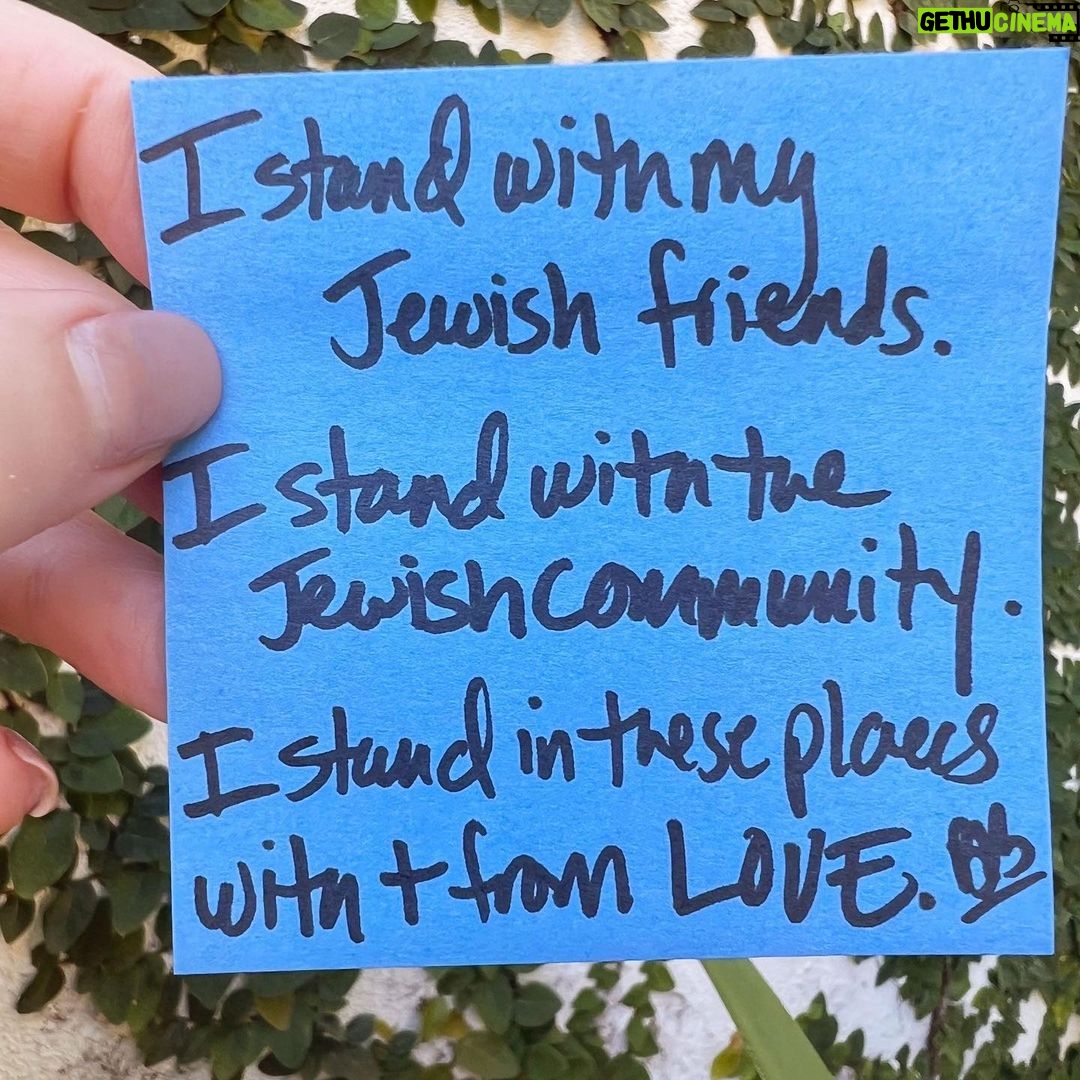 GETHUCINEMA
I stand with my
Jewish friends.
I stand with the
Jewish community.
I stand in these places
with + from LOVE.